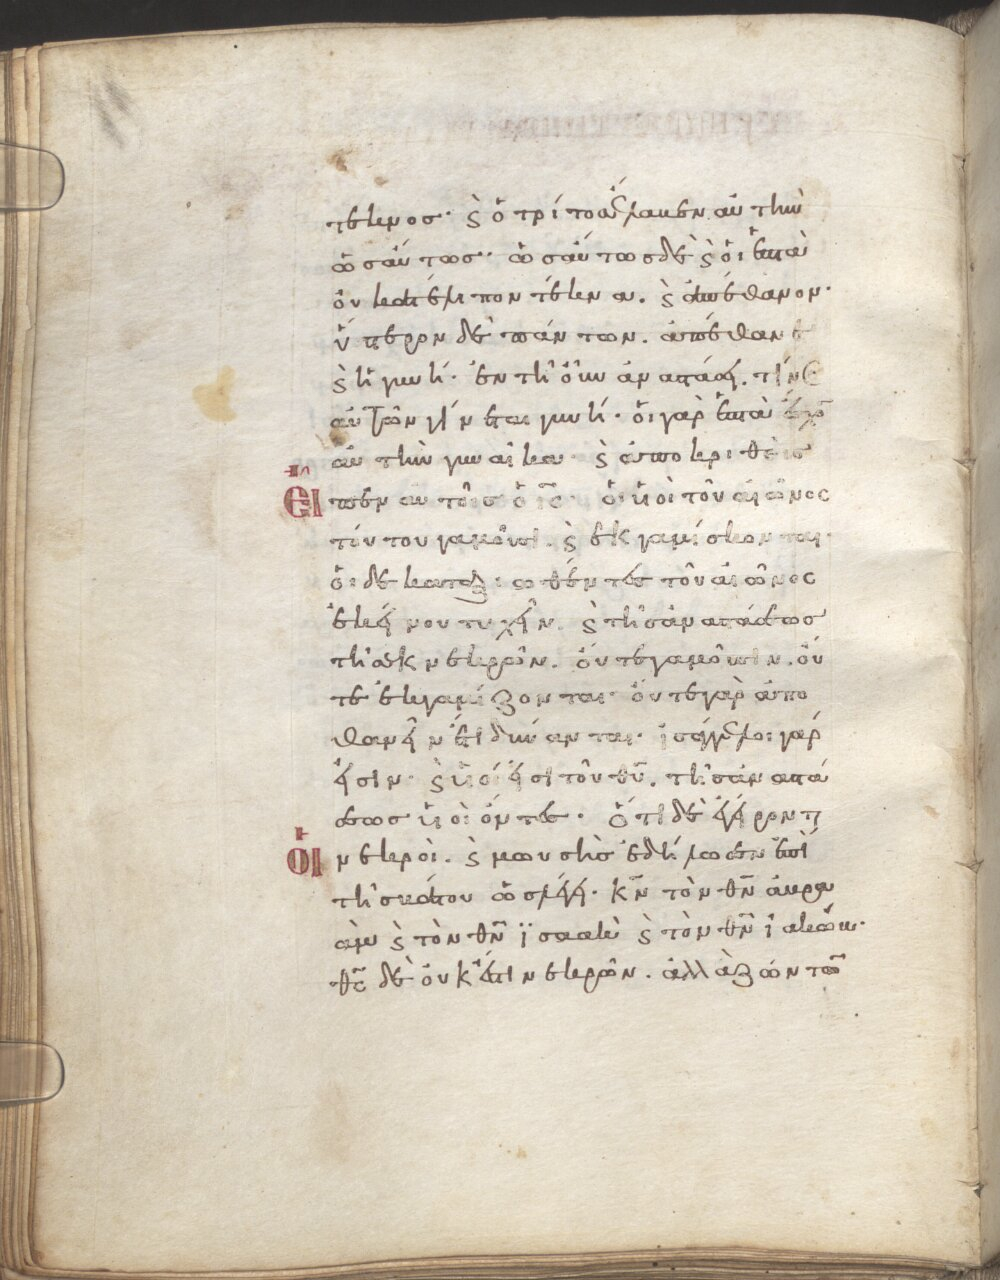 τεκνος· ϗ ὁ τρίτος ἔλαβεν αὐτὴν
ὡσαύτως· ὡσαύτως δὲ ϗ ὁι ἑπτὰ
ὀυ κατέλιπον τέκνα. ϗ ἀπέθανον·
ὕστερον δὲ πάντων. ἀπέθανε
ϗ ἡ γυνή· ἐν τῆ ὀῦν ἀναστάσει. τίνος
αὐτῶν γίνεται γυνή· ὁι γὰρ ἑπτὰ ἔσχον
αὐτὴν γυναῖκα· ϗ ἀποκριθεὶς
εἶπεν αὐτοῖς ὁ ις̄· ὁι ὑιοὶ τοῦ αἰῶνος
τούτου γαμοῦσι. ϗ ἐκγαμίσκονται·
ὁι δὲ καταξιωθέντες τοῦ αἰῶνος
ἐκείνου τυχεῖν. ϗ τῆς ἀναστάσεως
τῆς ἐκ νεκρῶν. ὄυτε γαμοῦσιν. ὄυ
τε ἐκγαμίζονται· ὄυτε γὰρ ἀπο
θανεῖν ἔτι δύνανται· ἰσάγγελοι γάρ
εἰσιν· ϗ ὑιοί εἰσι τοῦ θῡ. τῆς ἀναστά
σεως ὑιοὶ ὄντες· ὅτι δὲ ἐγείρονται
ὁι νεκροὶ. ϗ μωυσῆς ἐδήλωσεν ἐπὶ
τῆς βάτου ὡς λέγει· κ̄ν τὸν θ̄ν ἀβρα
ὰμ ϗ τὸν θ̄ν ϊσαὰκ ϗ τὸν θ̄ν ϊακώβ·
θ̄ς δὲ ὀυκ ἔστι νεκρῶν. ἀλλὰ ζώντων